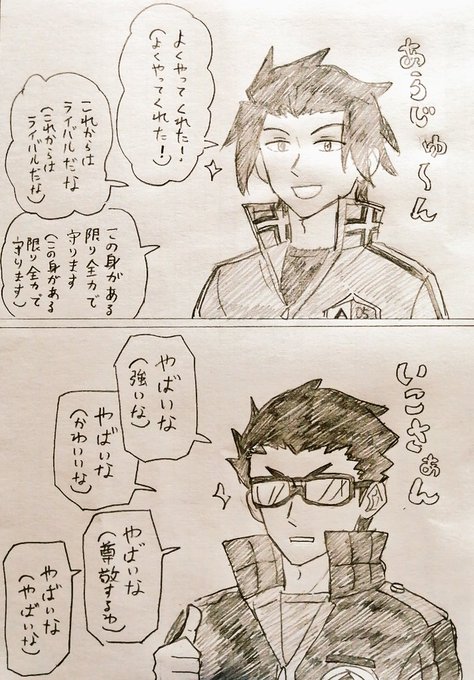 あらじゅ〜ん
よくやってくれた！
（よくやってくれた！）
これからは
ライバルだな
（これからは
ライバルだな）
この身がある
限り全力で
守ります
（この身がある
限り全力で
守ります）
05
いこさぁん
やばいな
（強いな）
やばいな
（かわいいな）
やばいな
（尊敬するわ）
やばいな
（やばいな）